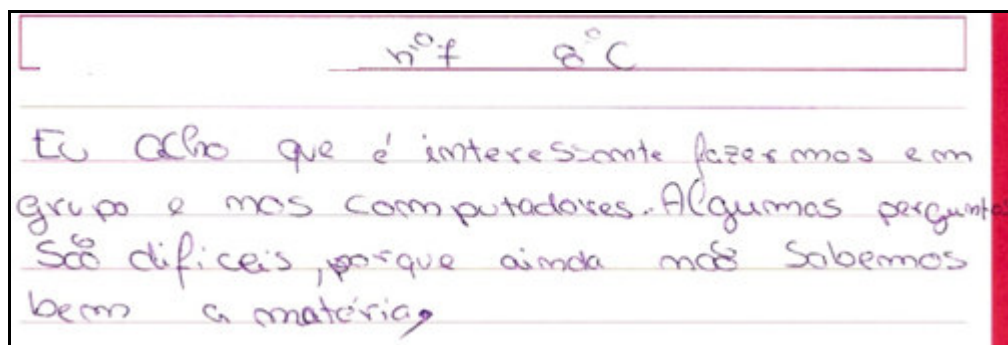 nº f 8ºC
Eu acho que é interessante fazermos em
grupo e nos computadores. Algumas pergunt
São dificeis, porque ainda não sabemos
bem a matéria,